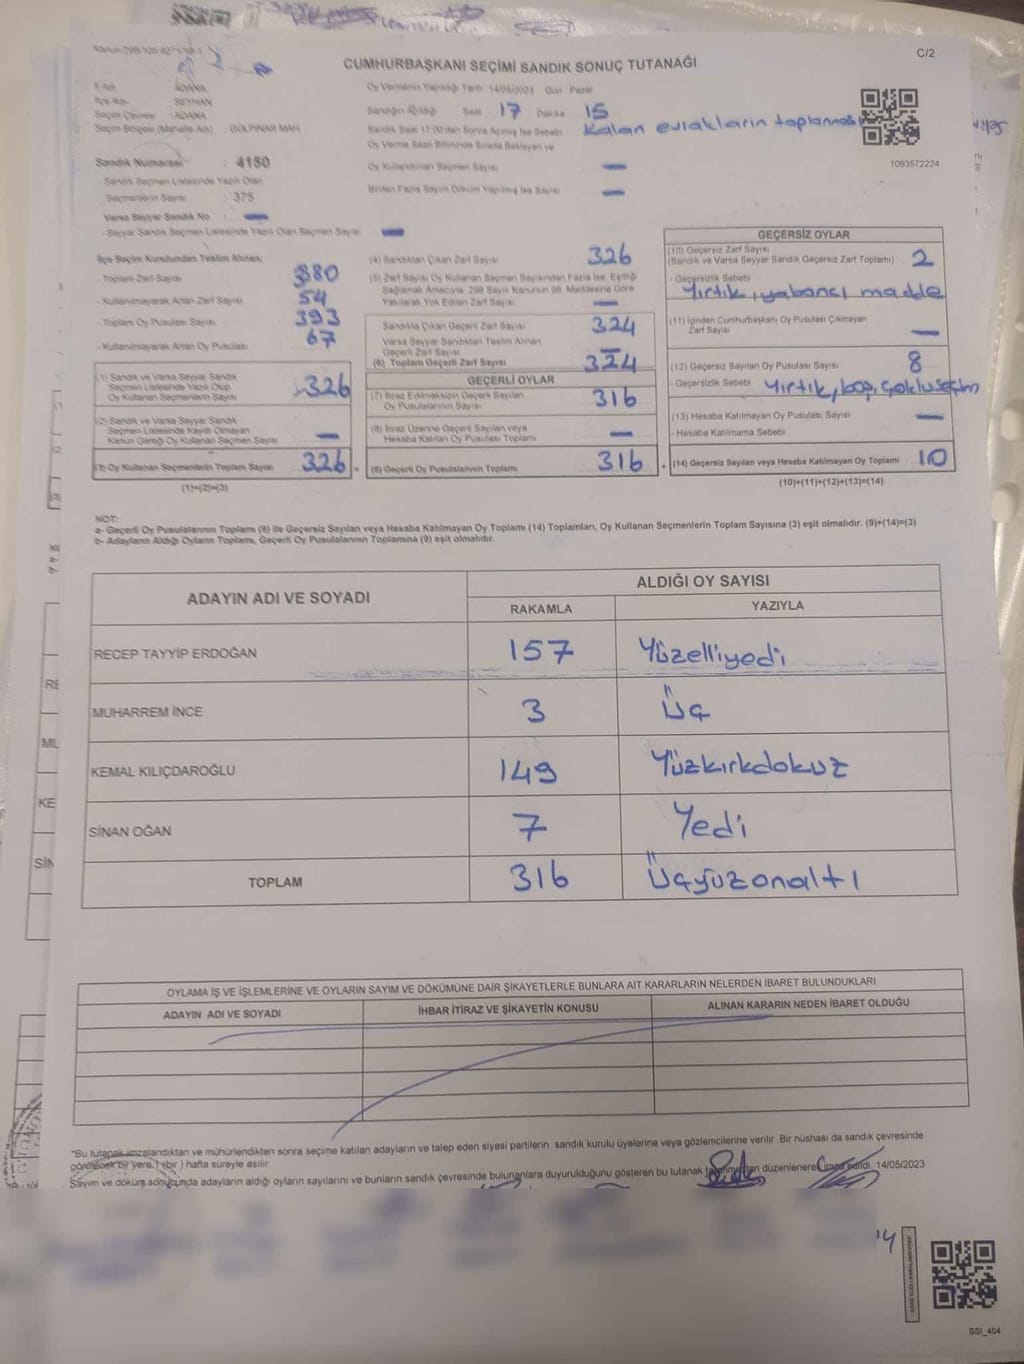 C/2
CUMHURBAŞKANI SEÇİMİ SANDIK SONUÇ TUTANAĞI
İl Adı : ADANA
İlçe Adı : SEYHAN
Seçim Çevresi : ADANA
Seçim Bölgesi (Mahalle Adı) : GÜLPINAR MAH.
Sandık Numarası : 4150
- Sandık Seçmen Listesinde Yazılı Olan
Seçmenlerin Sayısı : 375
Varsa Seyyar Sandık No : —
- Seyyar Sandık Seçmen Listesinde Yazılı Olan Seçmen Sayısı —
Oy Vermenin Yapıldığı Tarih 14/05/2023 Gün Pazar
Sandığın Açıldığı Saat 17 Dakika 15
Sandık Saat 17:00'den Sonra Açılmış İse Sebebi Kalan evrakların toplanması
Oy Verme Saati Bitiminde Sırada Bekleyen ve
Oy Kullandırılan Seçmen Sayısı —
Birden Fazla Sayım Döküm Yapılmış İse Sayısı —
1093572224
İlçe Seçim Kurulundan Teslim Alınan;
- Toplam Zarf Sayısı 380
- Kullanılmayarak Artan Zarf Sayısı 54
- Toplam Oy Pusulası Sayısı 393
- Kullanılmayarak Artan Oy Pusulası 67
(1) Sandık ve Varsa Seyyar Sandık
Seçmen Listesinde Yazılı Olup
Oy Kullanan Seçmenlerin Sayısı 326
(2) Sandık ve Varsa Seyyar Sandık
Seçmen Listesinde Kayıtlı Olmayan
Kanun Gereği Oy Kullanan Seçmen Sayısı —
(3) Oy Kullanan Seçmenlerin Toplam Sayısı 326 =
(1)+(2)=(3)
(4) Sandıktan Çıkan Zarf Sayısı 326
(5) Zarf Sayısı Oy Kullanan Seçmen Sayısından Fazla İse, Eşitliği
Sağlamak Amacıyla, 298 Sayılı Kanunun 98. Maddesine Göre
Yakılarak Yok Edilen Zarf Sayısı —
Sandıkta Çıkan Geçerli Zarf Sayısı 324
Varsa Seyyar Sandıktan Teslim Alınan
Geçerli Zarf Sayısı —
(6) Toplam Geçerli Zarf Sayısı 324
GEÇERLİ OYLAR
(7) İtiraz Edilmeksizin Geçerli Sayılan
Oy Pusulalarının Sayısı 316
(8) İtiraz Üzerine Geçerli Sayılan veya
Hesaba Katılan Oy Pusulası Toplamı —
(9) Geçerli Oy Pusulalarının Toplamı 316 +
GEÇERSİZ OYLAR
(10) Geçersiz Zarf Sayısı
(Sandık ve Varsa Seyyar Sandık Geçersiz Zarf Toplamı) 2
- Geçersizlik Sebebi
Yırtık, yabancı madde
(11) İçinden Cumhurbaşkanı Oy Pusulası Çıkmayan
Zarf Sayısı —
(12) Geçersiz Sayılan Oy Pusulası Sayısı 8
- Geçersizlik Sebebi Yırtık, boş, çoklu seçim
(13) Hesaba Katılmayan Oy Pusulası Sayısı —
- Hesaba Katılmama Sebebi
(14) Geçersiz Sayılan veya Hesaba Katılmayan Oy Toplamı 10
(10)+(11)+(12)+(13)=(14)
NOT:
a- Geçerli Oy Pusulalarının Toplamı (9) ile Geçersiz Sayılan veya Hesaba Katılmayan Oy Toplamı (14) Toplamları, Oy Kullanan Seçmenlerin Toplam Sayısına (3) eşit olmalıdır. (9)+(14)=(3)
b- Adayların Aldığı Oyların Toplamı, Geçerli Oy Pusulalarının Toplamına (9) eşit olmalıdır.
ADAYIN ADI VE SOYADI
ALDIĞI OY SAYISI
RAKAMLA YAZIYLA
RECEP TAYYİP ERDOĞAN 157 Yüzelliyedi
MUHARREM İNCE 3 Üç
KEMAL KILIÇDAROĞLU 149 Yüzkırkdokuz
SİNAN OĞAN 7 Yedi
TOPLAM 316 Üçyüzonaltı
OYLAMA İŞ VE İŞLEMLERİNE VE OYLARIN SAYIM VE DÖKÜMÜNE DAİR ŞİKAYETLERLE BUNLARA AİT KARARLARIN NELERDEN İBARET BULUNDUKLARI
ADAYIN ADI VE SOYADI İHBAR İTİRAZ VE ŞİKAYETİN KONUSU ALINAN KARARIN NEDEN İBARET OLDUĞU
"Bu tutanak imzalandıktan ve mühürlendikten sonra seçime katılan adayların ve talep eden siyasi partilerin sandık kurulu üyelerine veya gözlemcilerine verilir. Bir nüshası da sandık çevresinde
görülecek bir yere 1 (bir) hafta süreyle asılır.
Sayım ve döküm sonucunda adayların aldığı oyların sayılarını ve bunların sandık çevresinde bulunanlara duyurulduğunu gösteren bu tutanak düzenlenerek imza edildi. 14/05/2023
SSI_404